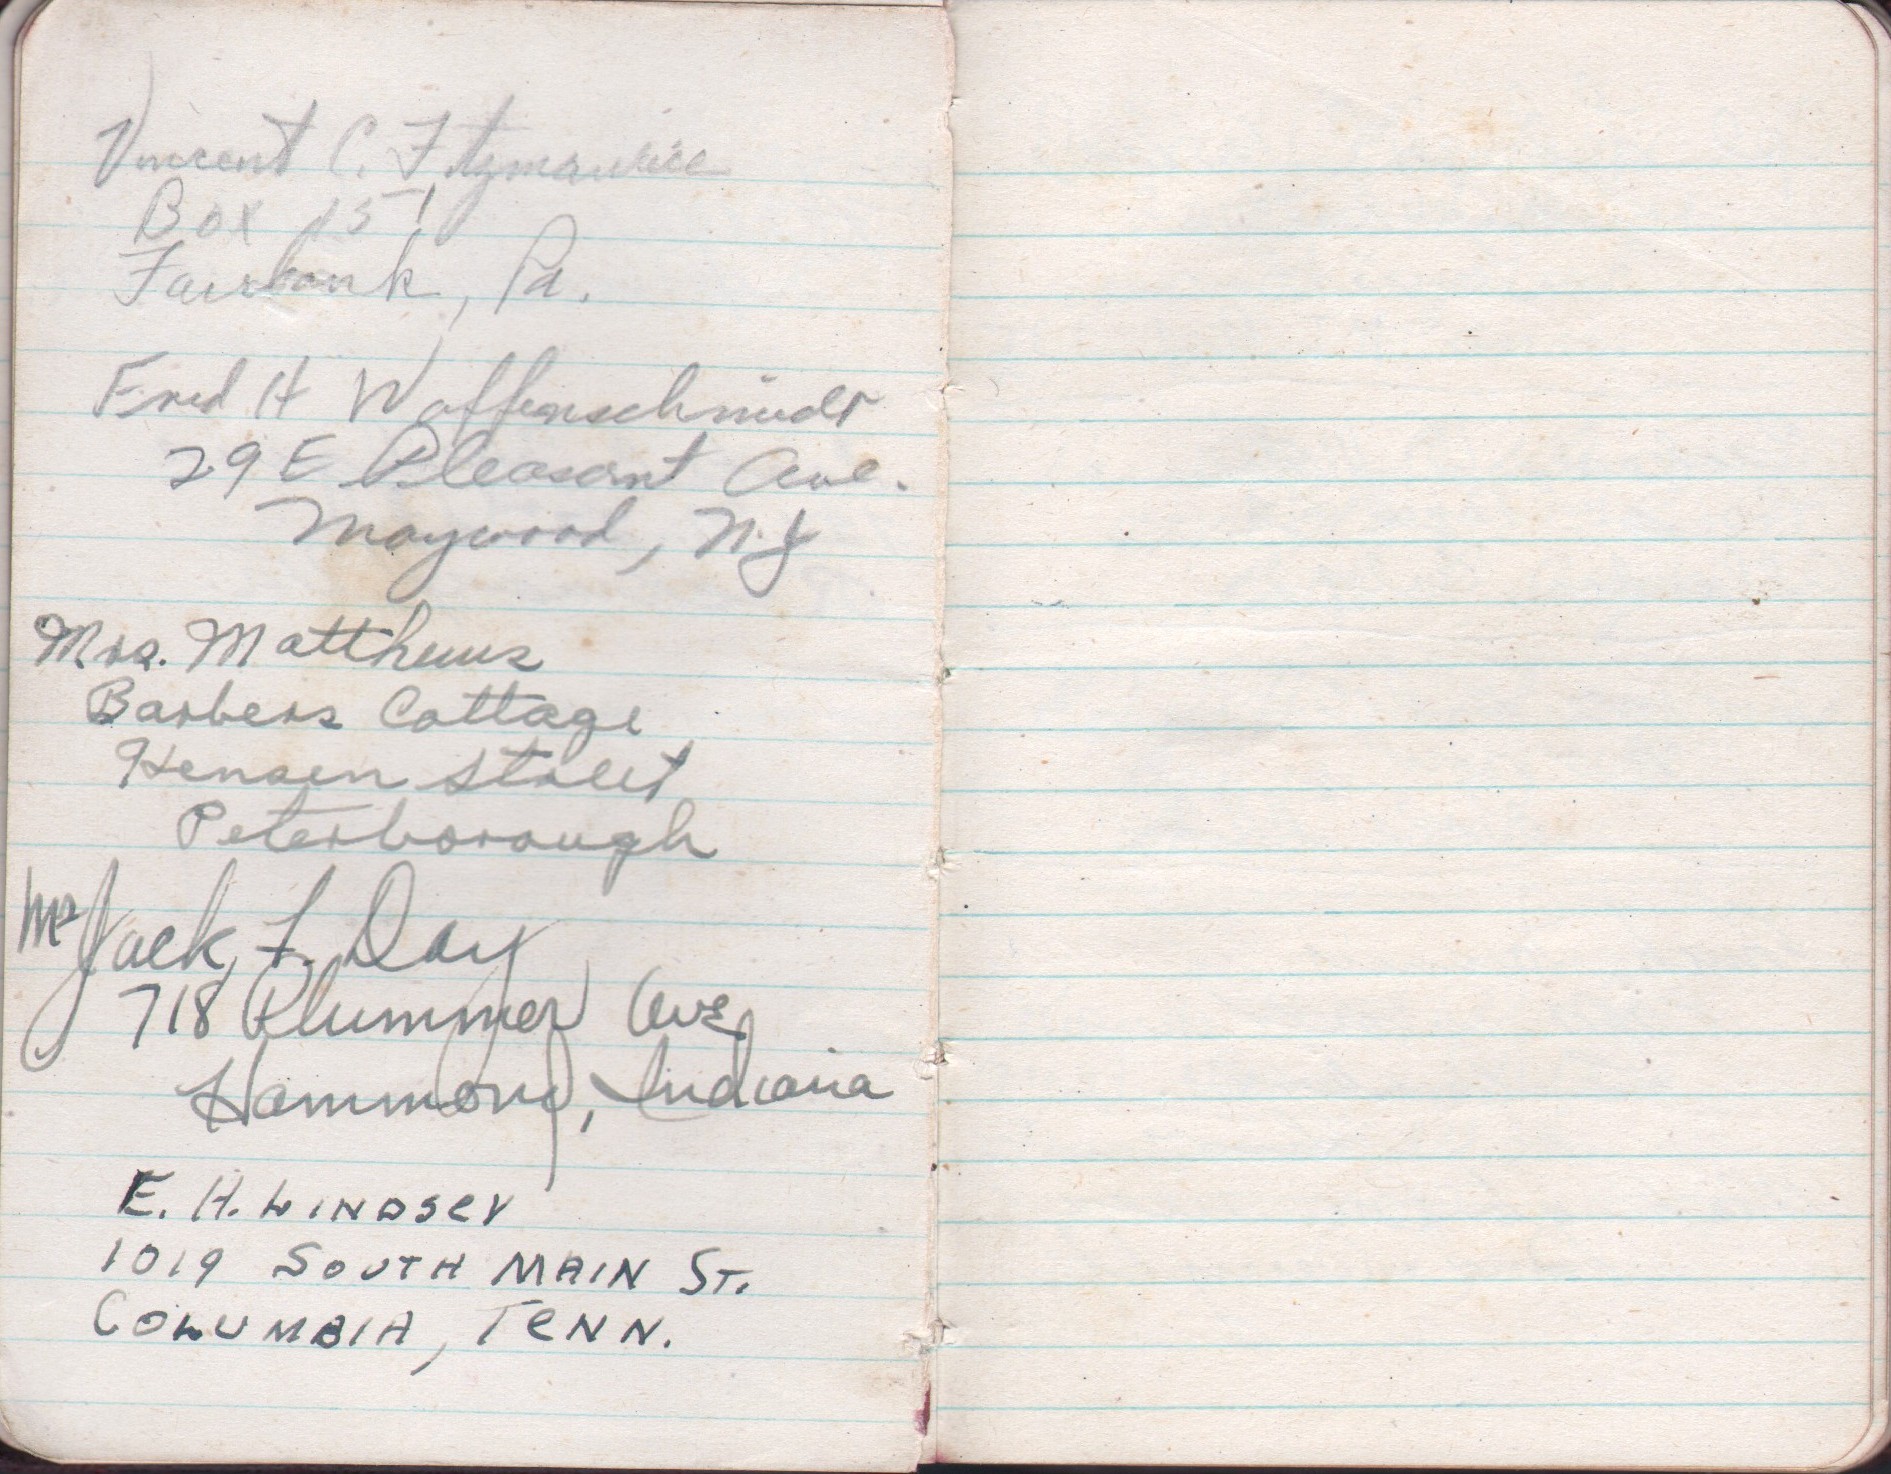 Vincent C. Fitzmaurice
Box 151
Fairbank, Pa.
Fred H Waffenschmidt
29 E Pleasant Ave.
Maywood, N.J
Mrs. Matthews
Barbers Cottage
Hensen Street
Peterborough
Mr Jack F. Day
718 Plummer Ave
Hammond, Indiana
E. H. LINDSEY
1019 SOUTH MAIN ST.
COLUMBIA, TENN.